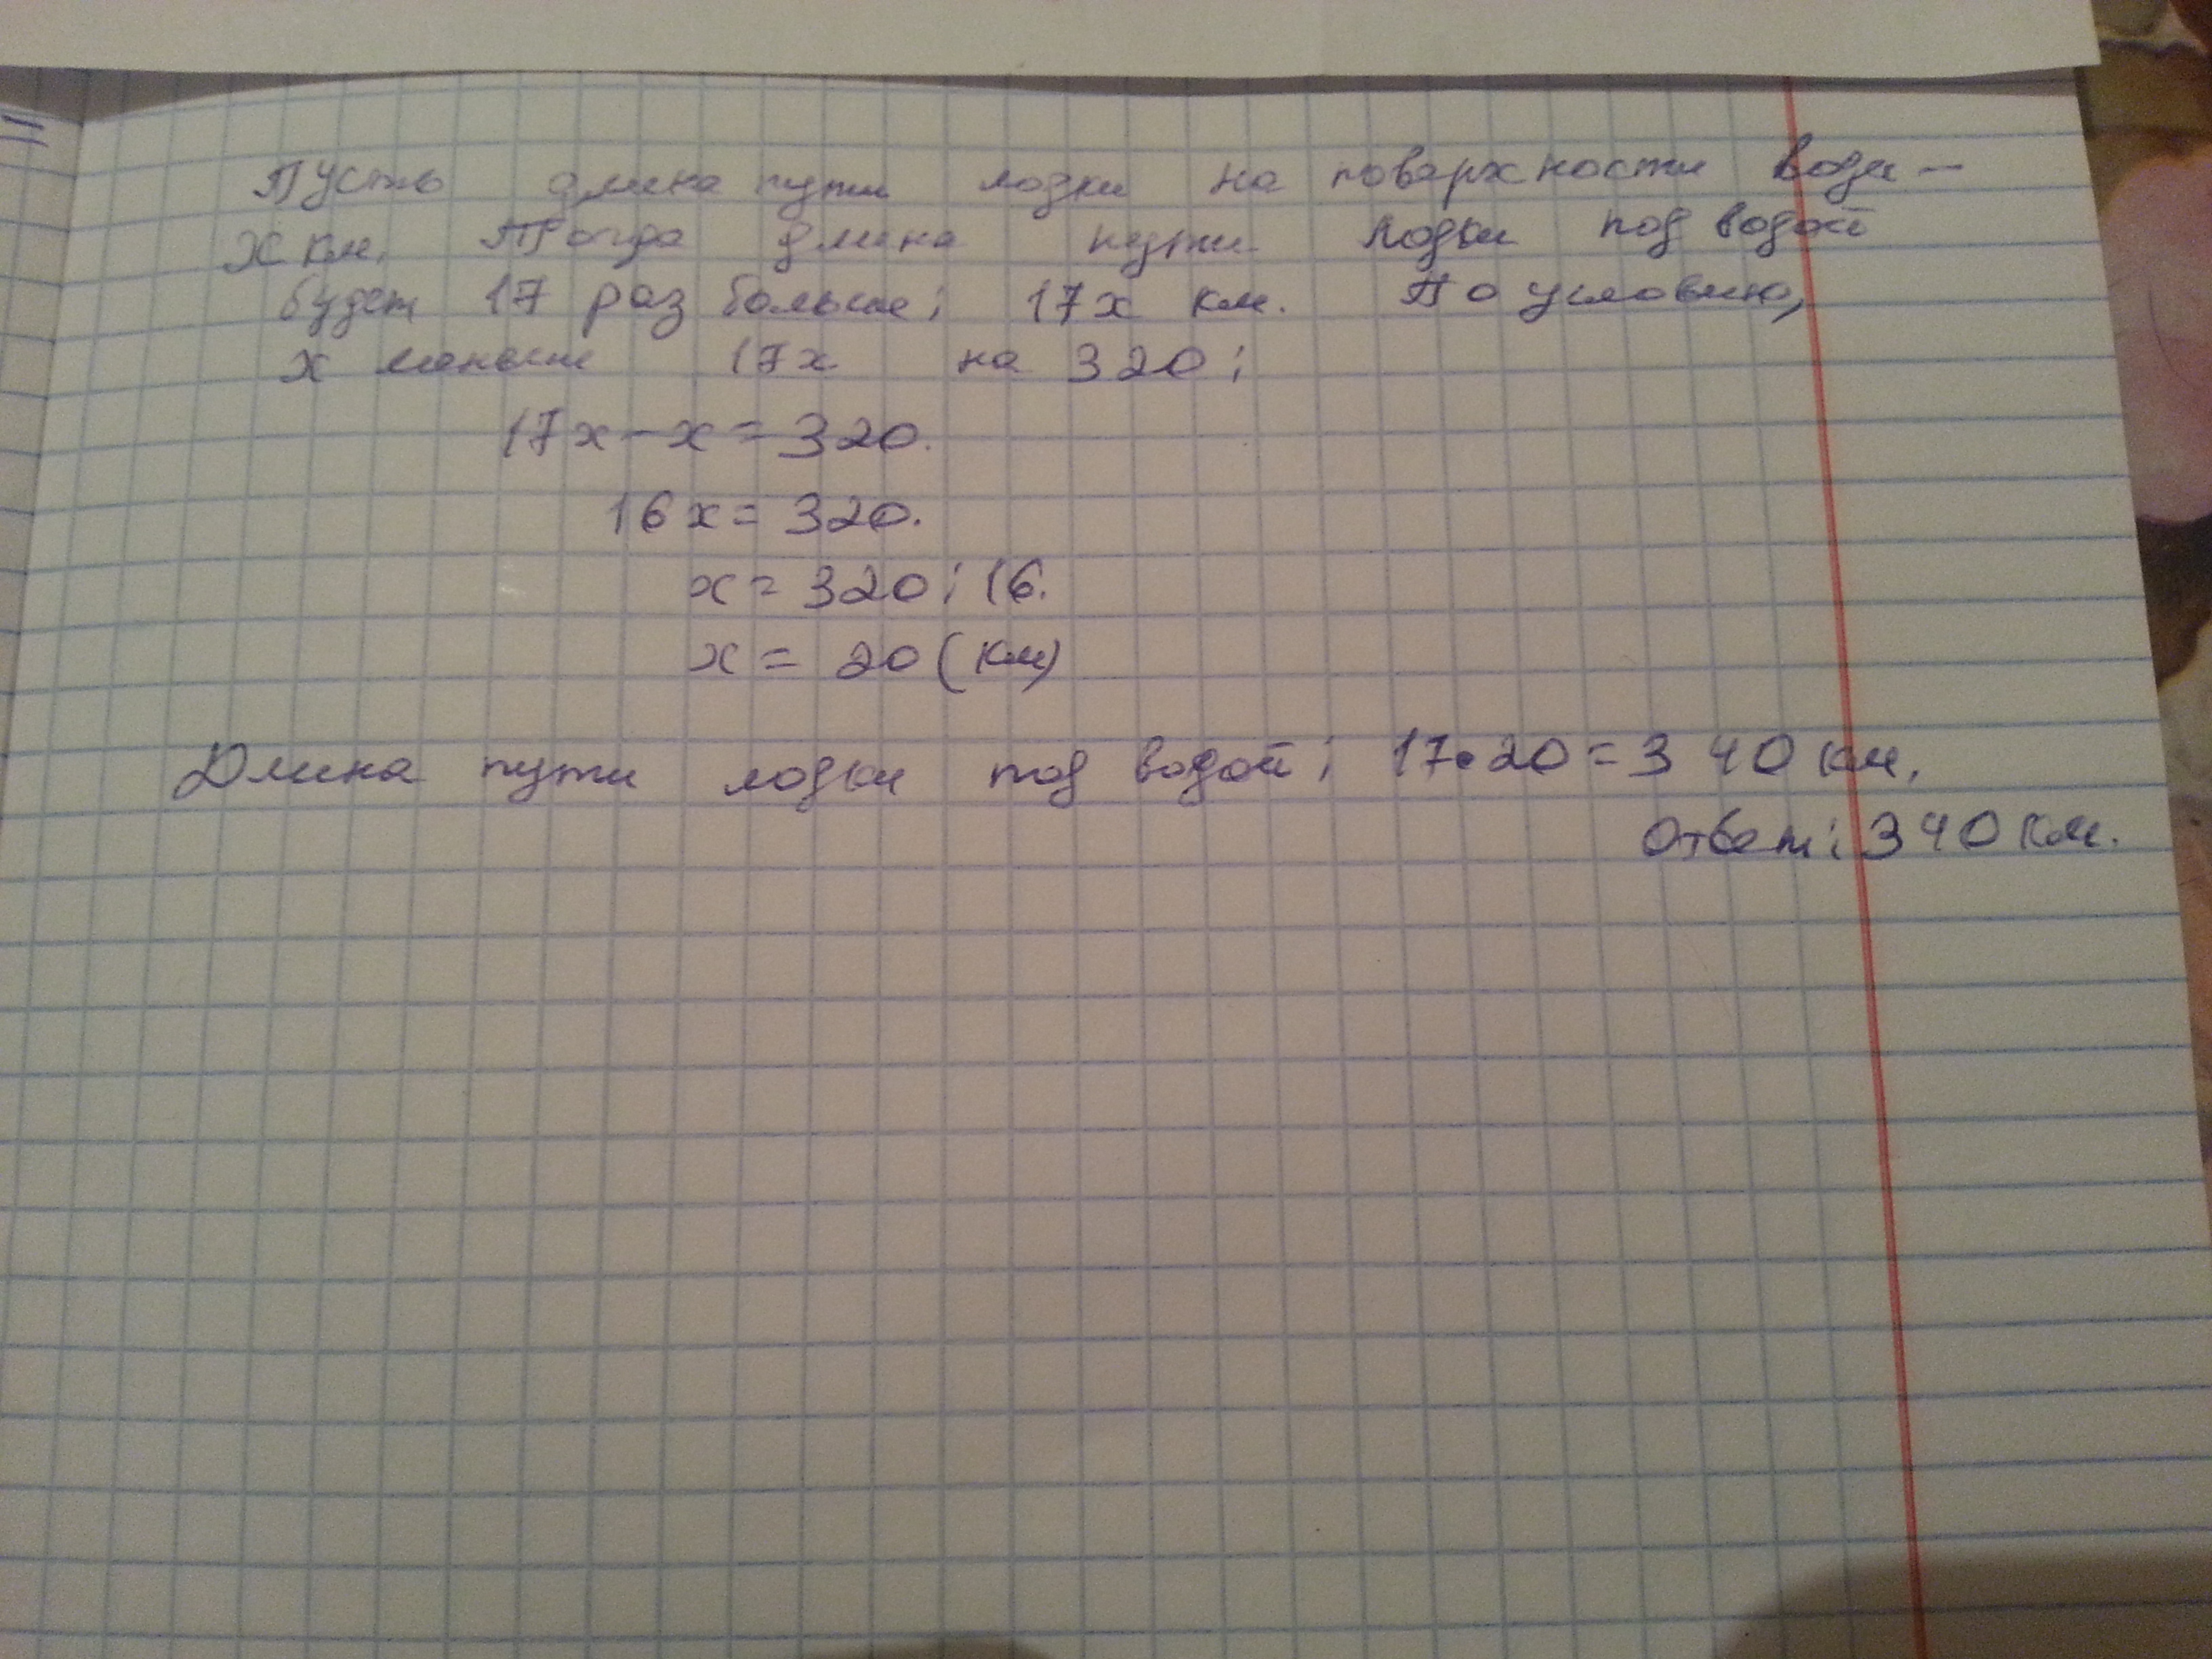 Пусть длина пути лодки на поверхности воды -
х км. Тогда длина пути лодки под водой
будет 17 раз больше: 17х км. По условию,
х меньше 17х на 320:
17х - х = 320.
16х = 320.
х = 320 : 16.
х = 20 (км)
Длина пути лодки под водой: 17•20 = 340 км.
Ответ: 340 км.